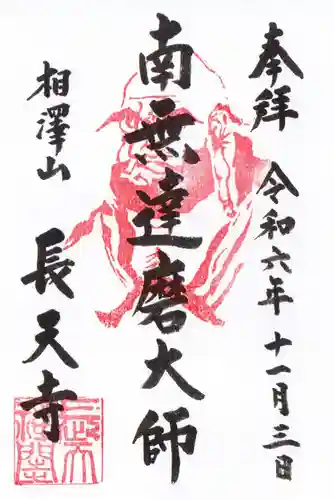 奉拝
令和六年十一月三日
南無達磨大師
相澤山
長天寺